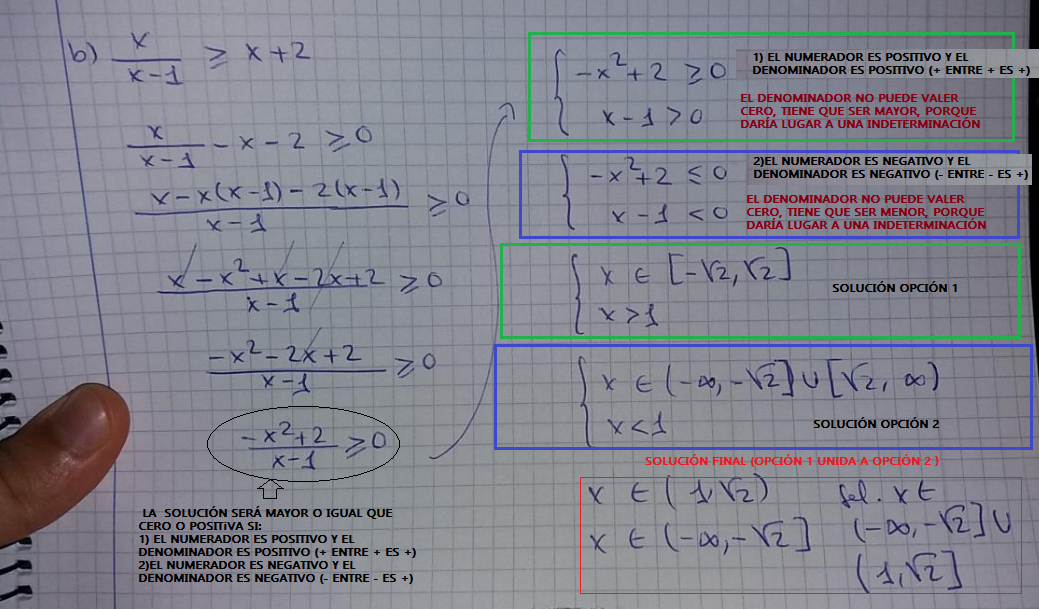 b) x/(x-1) ≥ x+2
x/(x-1) - x - 2 ≥ 0
(x - x(x-1) - 2(x-1))/(x-1) ≥ 0
(x - x² + x - 2x + 2)/(x-1) ≥ 0
(-x² - 2x + 2)/(x-1) ≥ 0
(-x² + 2)/(x-1) ≥ 0
LA SOLUCIÓN SERÁ MAYOR O IGUAL QUE
CERO O POSITiVA SI:
1) EL NUMERADOR ES POSITIVO Y EL
DENOMINADOR ES POSITIVO (+ ENTRE + ES +)
2)EL NUMERADOR ES NEGATIVO Y EL
DENOMINADOR ES NEGATIVO (- ENTRE - ES +)
{ -x² + 2 ≥ 0
x - 1 > 0
1) EL NUMERADOR ES POSITIVO Y EL
DENOMINADOR ES POSITIVO (+ ENTRE + ES +)
EL DENOMINADOR NO PUEDE VALER
CERO, TIENE QUE SER MAYOR, PORQUE
DARÍA LUGAR A UNA INDETERMINACIÓN
{ -x² + 2 ≤ 0
x - 1 < 0
2)EL NUMERADOR ES NEGATIVO Y EL
DENOMINADOR ES NEGATIVO (- ENTRE - ES +)
EL DENOMINADOR NO PUEDE VALER
CERO, TIENE QUE SER MENOR, PORQUE
DARÍA LUGAR A UNA INDETERMINACIÓN
{ x ∈ [-√2, √2]
x > 1
SOLUCIÓN OPCIÓN 1
{ x ∈ (-∞, -√2] ∪ [√2, ∞)
x < 1
SOLUCIÓN OPCIÓN 2
SOLUCIÓN FINAL (OPCIÓN 1 UNIDA A OPCIÓN 2 )
x ∈ (1, √2)
x ∈ (-∞, -√2]
Sol. x ∈
(-∞, -√2] ∪
(1, √2]